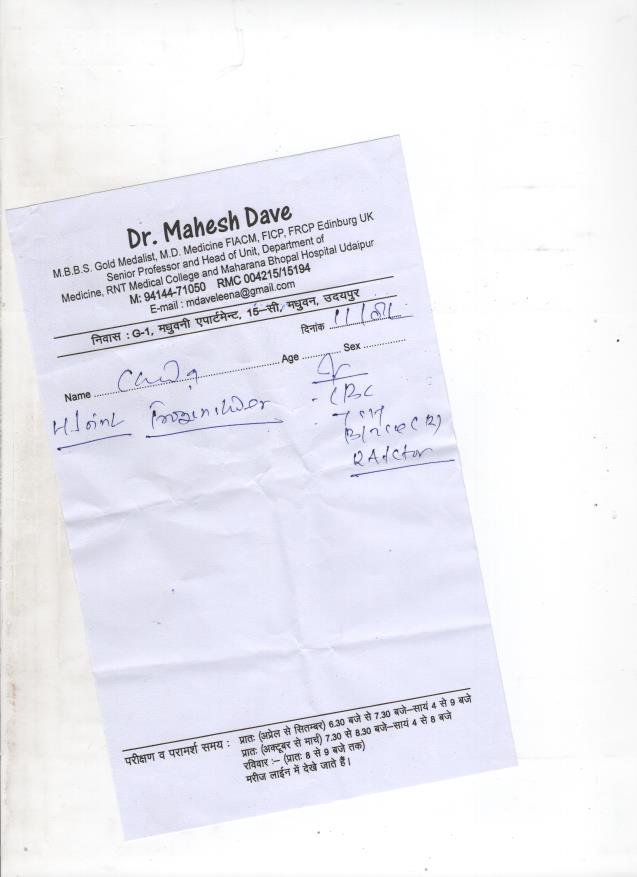 Dr. Mahesh Dave
M.B.B.S. Gold Medalist, M.D. Medicine FIACM, FICP, FRCP Edinburg UK
Senior Professor and Head of Unit, Department of
Medicine, RNT Medical College and Maharana Bhopal Hospital Udaipur
M: 94144-71050 RMC 004215/15194
E-mail : mdaveleena@gmail.com
निवास : G-1, मधुवनी एपार्टमेन्ट, 15-सी, मधुवन, उदयपुर
दिनांक
Name .................... Age ............ Sex ............
CBC
RA factor
परीक्षण व परामर्श समय : प्रातः (अप्रेल से सितम्बर) 6.30 बजे से 7.30 बजे-सायं 4 से 9 बजे
प्रातः (अक्टूबर से मार्च) 7.30 से 8.30 बजे-सायं 4 से 8 बजे
रविवार :- (प्रातः 8 से 9 बजे तक)
मरीज लाईन में देखे जाते हैं।